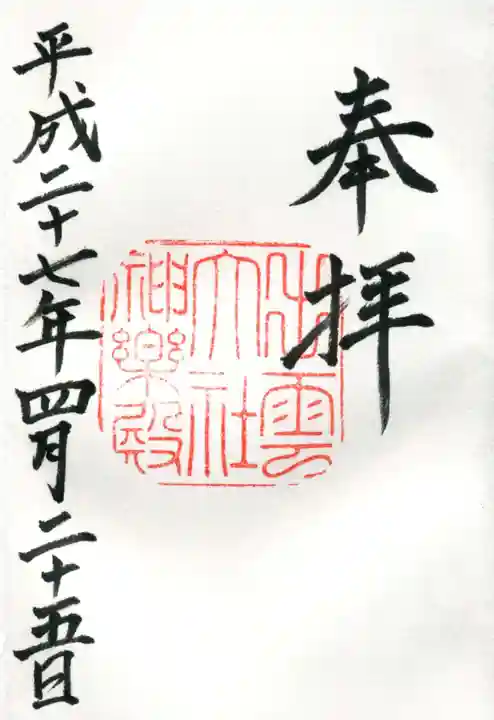 奉拝
出雲
大社
神楽殿
平成二十七年四月二十五日